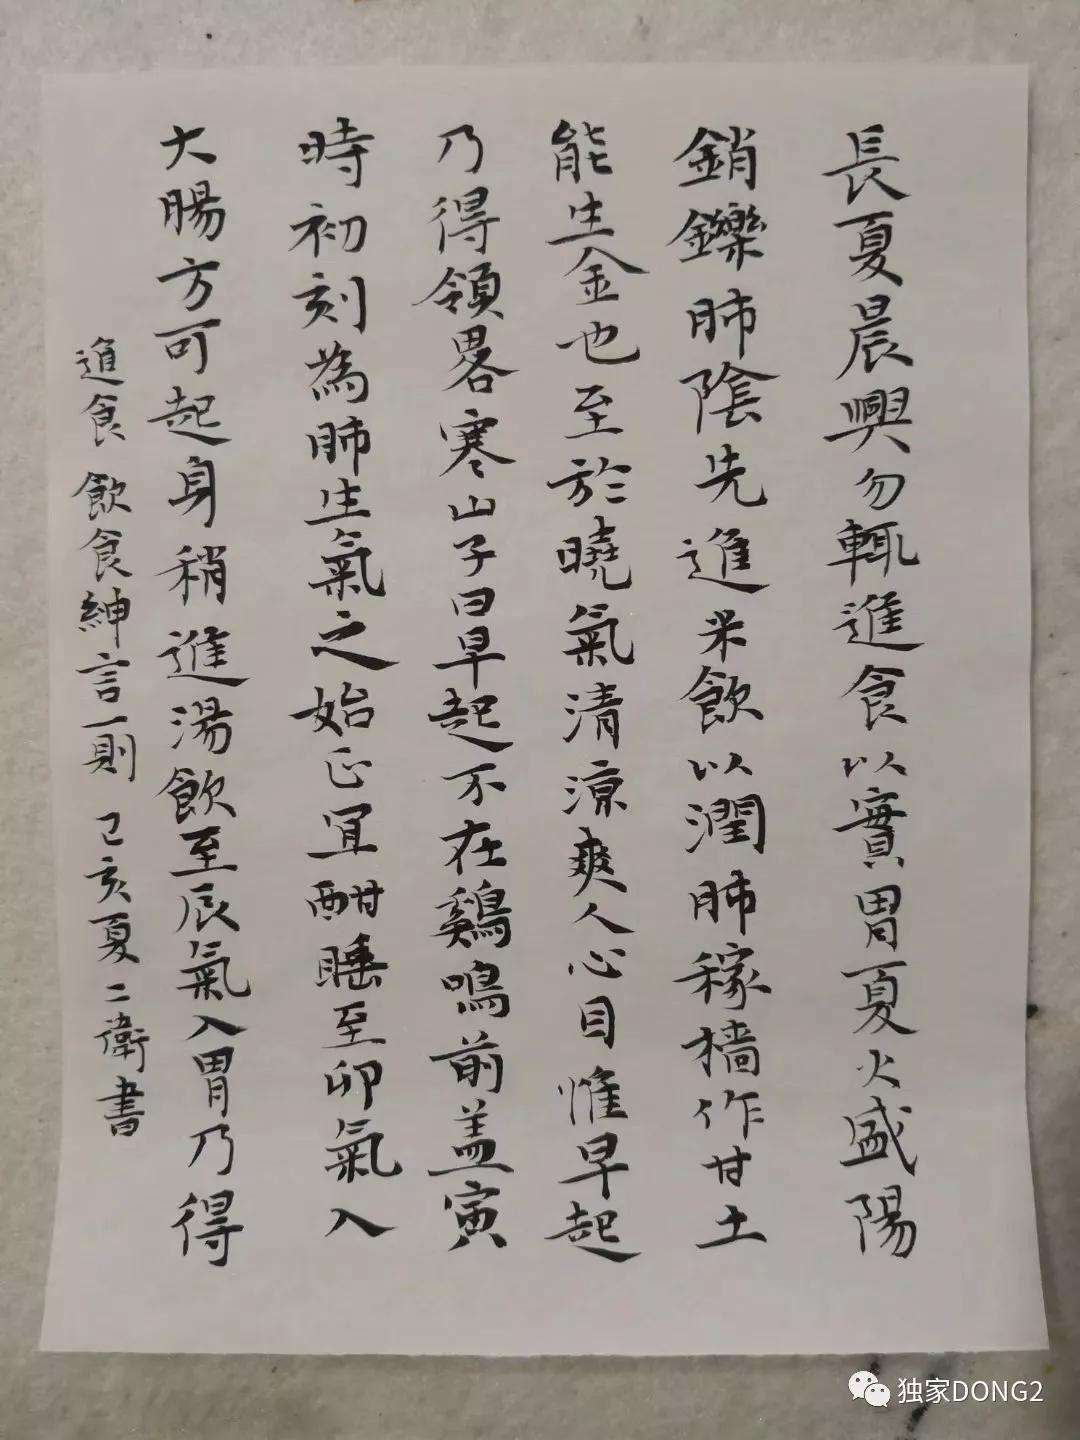 長夏晨興勿輒進食以實胃夏火盛陽
銷鑠肺陰先進米飲以潤肺稼穡作甘土
能生金也至於曉氣清涼爽人心目惟早起
乃得領畧寒山子曰早起不在鷄鳴前蓋寅
時初刻為肺生氣之始正宜酣睡至卯氣入
大腸方可起身稍進湯飲至辰氣入胃乃得
進食 飲食紳言一則 己亥夏二衛書
独家DONG2